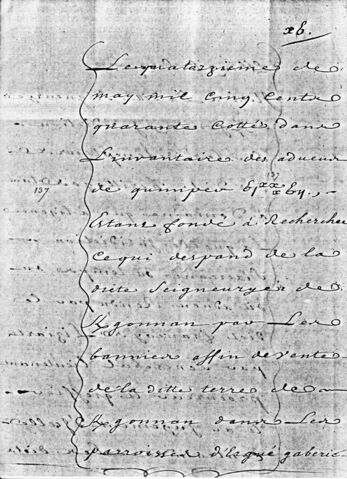 xb.
Le quatorziesme de
may mil cinq cents
quarante cotté dans
L'invantaire des adveux
de quimper
137
Estant fondé à Rechercher
ce qui despand de la
dite Seigneurye de
Kgonnan par Les
bannies affin de vente
de la ditte terre de
Kgonnan dans Les
parroisses d'Ergué gaberic